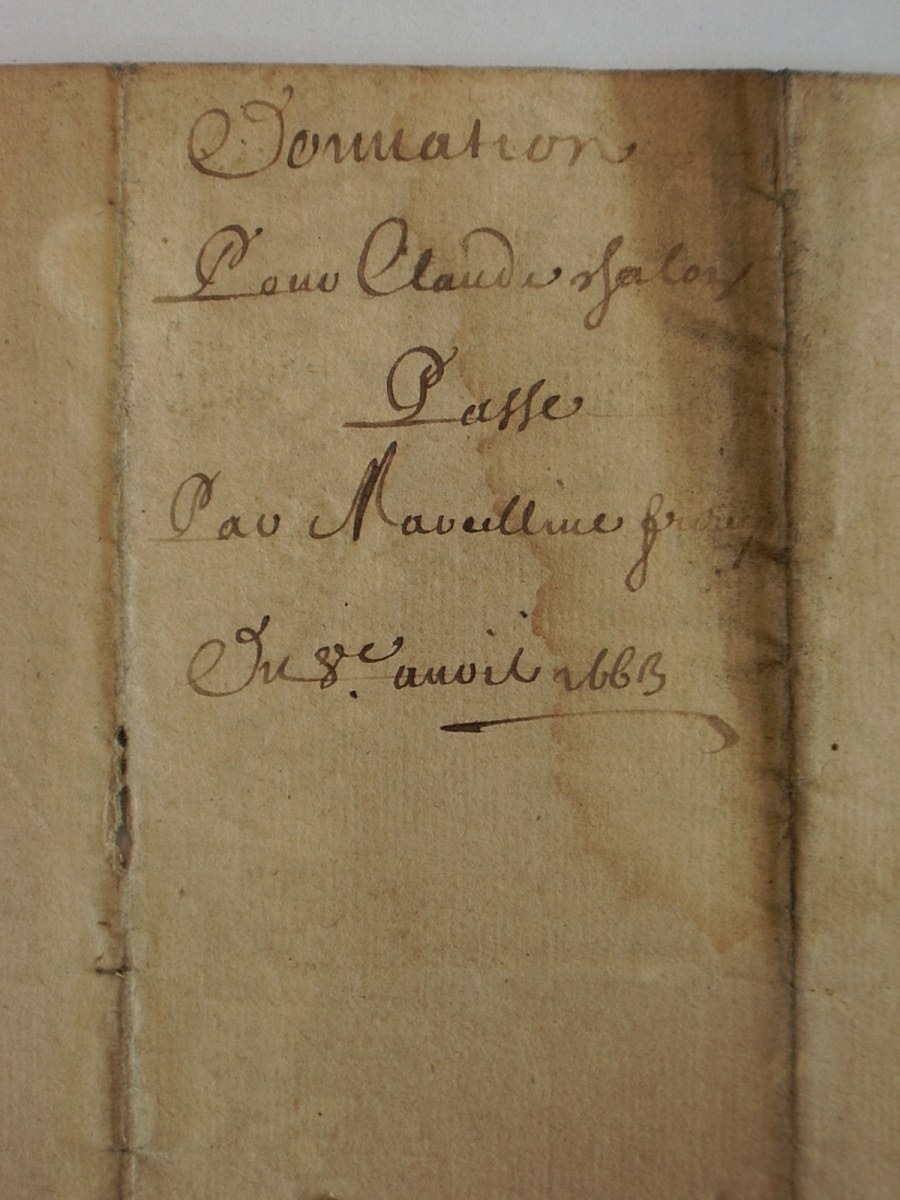 Donnation
Pour Claude chalon
Passe
Par Marcelline
Du 8e auvril 1663